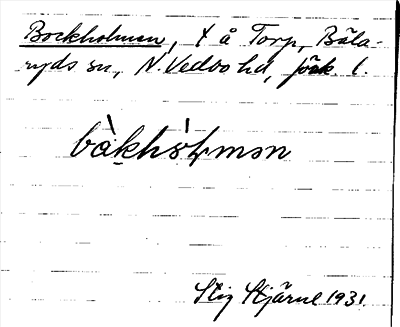 Bockholmen, t å Torp, Bäla-
ryds sn, N. Vedbo hd, Jönk. l.
bàkhòʟmən
Stig Stjärne 1931.